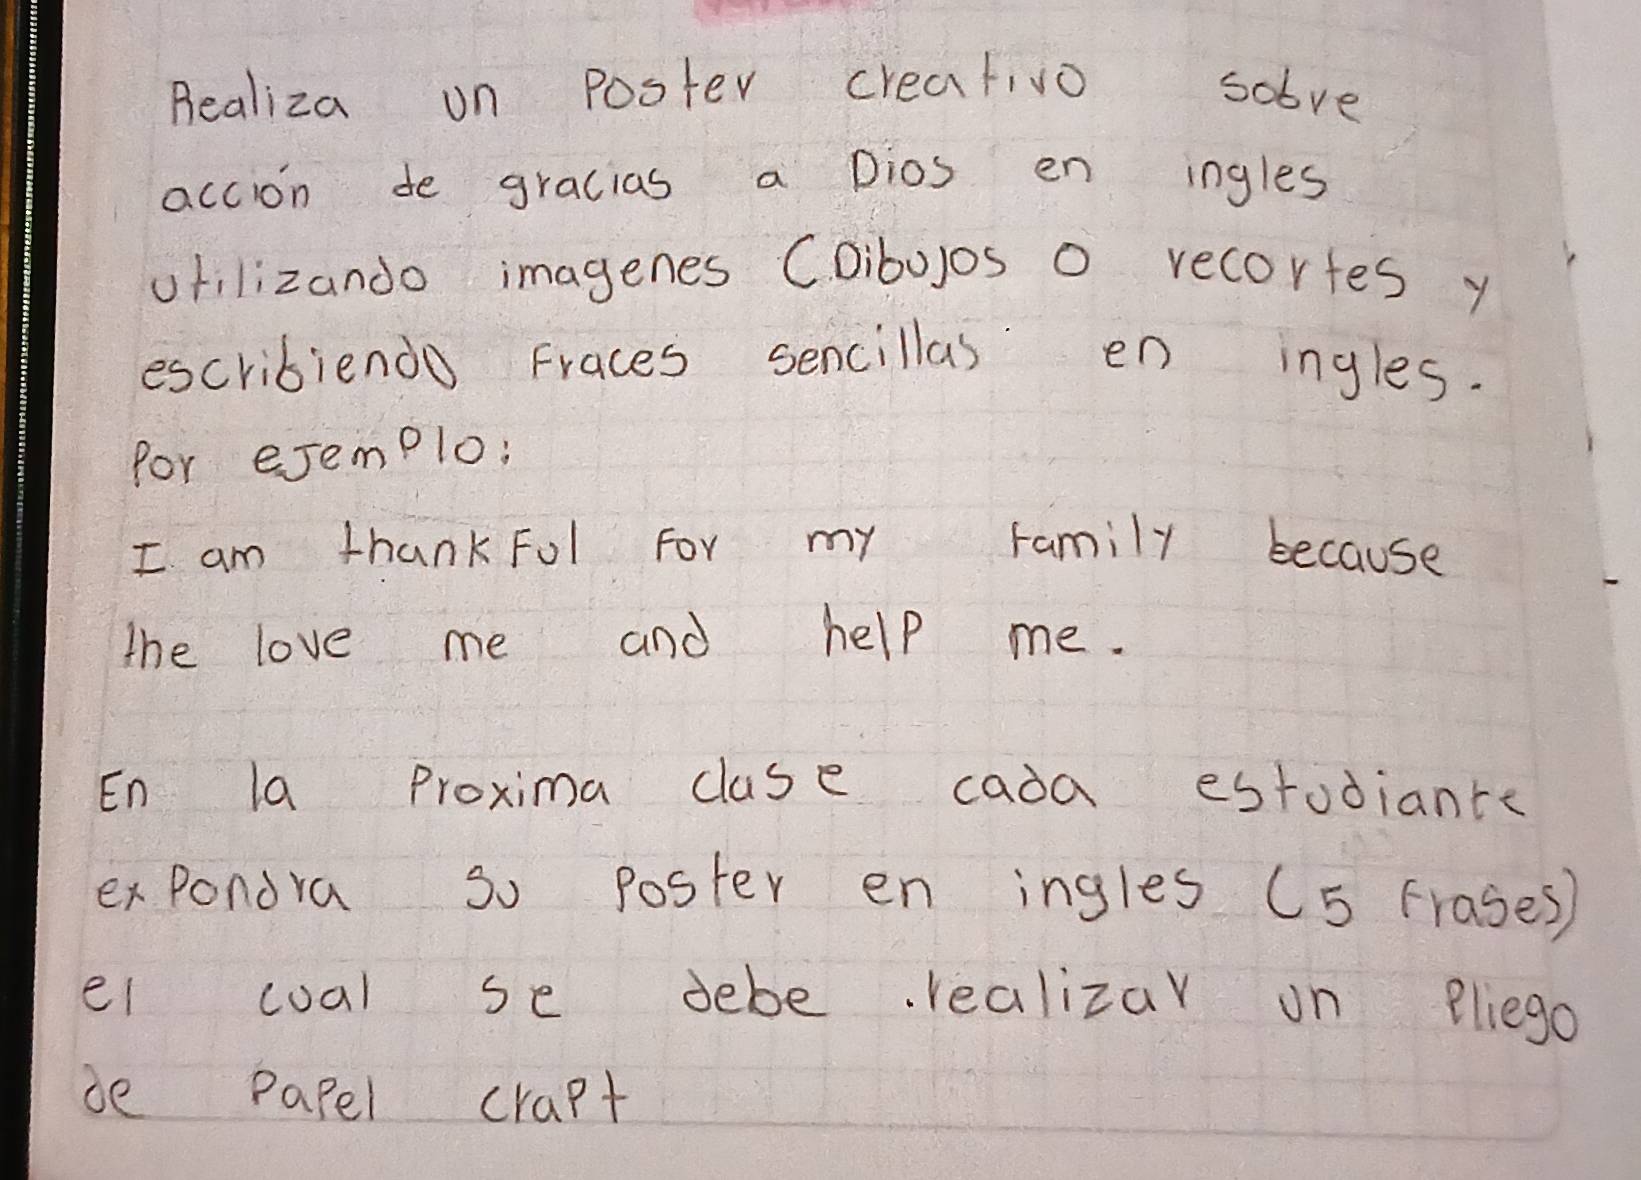 Realiza un Poster creativo sobre
acción de gracias a Dios en ingles
utilizando imagenes (Dibujos o recortes y
escribiendo Fraces sencillas en ingles.
Por ejemplo:
I am thankFul For my family because
the love me and help me.
En la Proxima clase cada estudiante
exPondra su Poster en ingles (5 Frases)
el cual se debe realizar un Pliego
de PaPel craPt